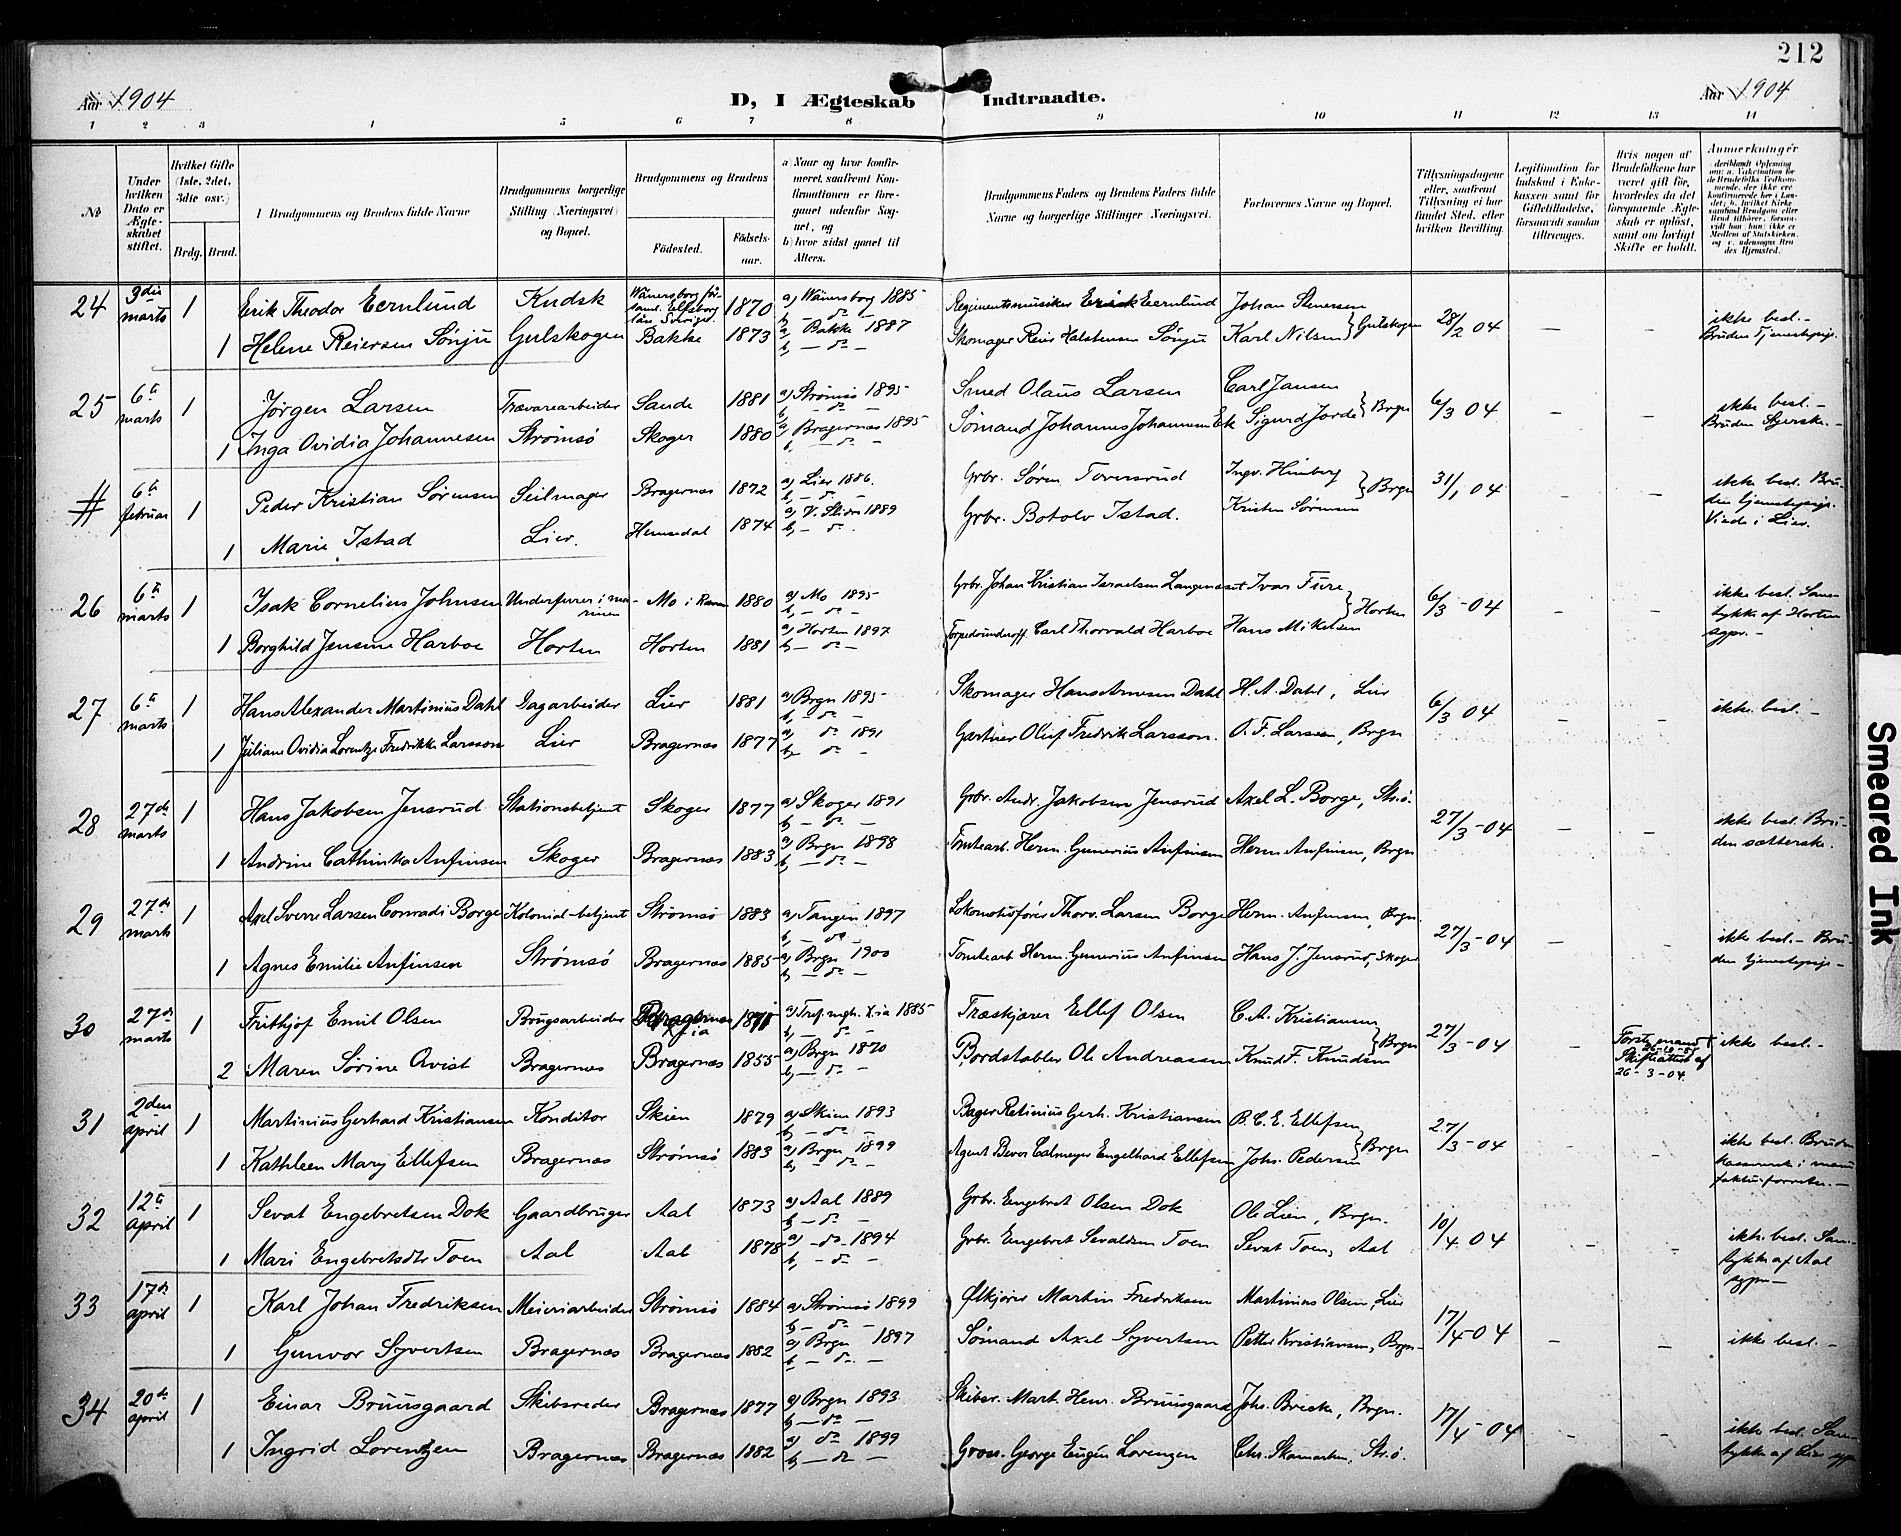 212
Aar 1904
D, I Ægteskab Indtraadte.
Aar 1904
1 2 3 4 5 6 7 8 9 10 11 12 13 14
No
Under hvilken Dato er Ægteskabet stiftet.
Hvilket Gifte (1ste, 2det, 3die osv.)
Brdg. Brud.
Brudgommens og Brudens fulde Navne
Brudgommens borgerlige Stilling (Næringsvei) og Bopæl.
Brudgommens og Brudens
Fødested. Fødsels-aar.
a) Naar og hvor konfirmeret, saafremt Konfirmationen er foregaaet udenfor Sognet, og
b) hvor sidst gaaet til Alters.
Brudgommens Faders og Brudens Faders fulde Navne og borgerlige Stillinger (Næringsvei.
Forlovernes Navne og Bopæl.
Tillysningsdagene eller, saafremt Tillysning ei har fundet Sted, efter hvilken Bevilling.
Legitimation for Indskud i Enkekassen samt for Giftetilladelse, forsaavidt saadan tiltrænges.
Hvis nogen af Brudefolkene har været gift før, hvorledes da det foregaaende Ægteskab er opløst, samt om lovligt Skifte er holdt.
Anmerkninger
24 3die marts 1 Erik Theodor Eernlund Kudsk 1870 a) Wänersborg 1885 Regimentsmusiker Erick Eernlund Johan Stenersen
1 Helene Reiersen Sönju Gulskogen Bakke 1873 a) Bakke 1887 Skomager Reier Halstensen Sönju Karl Nilsen } Gulskogen 28/2 04 ikke besl. - Bruden Tjenestepige.
25 6te marts 1 Jörgen Larsen Trævarearbeider Sande 1881 a) Strömsö 1895 Smed Olaus Larsen Carl Jansen
1 Inga Ovidia Johannesen Strömsö Skoger 1880 a) Bragernes 1895 Sömand Johannes Johannesen Ek Sigurd Jorde } Brgn 6/3 04 ikke besl. - Bruden Syerske. -
# 6te februar 1 Peder Kristian Sörensen Seilmager Bragernes 1872 a) Lier 1886. Grbr. Sören Toversrud Ingv. Himberg
1 Marie Istad Lier. Hemsedal 1874 a) V. Slidre 1889 Grbr. Botolv Istad. Kristen Sörensen } Brgn 31/1 04 ikke besl. Bruden tjenestepige. Viede i Lier.
26 6te marts 1 Isak Cornelius Johnsen Underfurer i marinen Mo i Ranen 1880 a) Mo 1895 Grbr. Johan Kristian Israelsen Langenæset Ivar Fure
1 Borghild Jensine Harboe Horten Horten 1881 a) Horten 1897 Torpedounderoff. Carl Thorvald Harboe Hans Mikelsen } Horten 6/3 - 04 ikke besl. Samtykke af Horten sgpr. -
27 6te marts 1 Hans Alexander Martinius Dahl Dagarbeider Lier 1881 a) Brgn 1895 Skomager Hans Arnesen Dahl H. A. Dahl, Lier
1 Juliane Ovidia Lorentze Fredrikke Larsson Lier Bragernes 1877 a) do 1891 Gartner Oluf Fredrik Larsson. O. F. Larsson, Brgn 6/3 04 ikke besl. -
28 27de marts 1 Hans Jakobsen Jensrud Stationsbetjent Skoger 1877 a) Skoger 1891 Grbr. Andr. Jakobsen Jensrud Axel L. Borge, Strö.
1 Andrine Cathinka Anfinsen Skoger Bragernes 1883 a) Brgn 1898 Tomtearb. Herm. Gunerius Anfinsen Herm Anfinsen, Brgn 27/3 - 04 ikke besl. Bruden sætterske.
29 27de marts 1 Axel Sverre Larsen Conradi Borge Kolonial-betjent Strömsö 1883 a) Tangen 1897 Lokomotivförer Thorv. Larsen Borge Herm. Anfinsen, Brgn.
1 Agnes Emilie Anfinsen Strömsö Bragernes 1885 a) Brgn 1900 Tomtearb Herm. Gunerius Anfinsen Hans J. Jensrud, Skoger 27/3 - 04 ikke besl. - Bruden tjenestepige -
30 27de marts 1 Frithjof Emil Olsen Brugsarbeider 1871 a) Tref. mgh. X.ia 1885 Træskjærer Ellef Olsen C. A. Kristiansen
2 Maren Sörine Qvist Bragernes Bragernes 1855 a) Brgn 1870 Bordstabler Ole Andreassen Knud F. Knudsen } Brgn 27/3 - 04 Förste mand † Skifteattest af 26-3-04. ikke besl. -
31 2den april 1 Martinius Gerhard Kristiansen Konditor Skien 1879 a) Skien 1893 Bager Retinius Gerh. Kristiansen B. C. E. Ellefsen
1 Kathleen Mary Ellefsen Bragernes Strömsö 1883 a) Brgn 1899 Agent Bever Calmeyer Engelhard Ellefsen Johs. Pedersen } Brgn 27/3 - 04 ikke besl. Bruden
32 12te april 1 Sevat Engebretsen Dok Gaardbruger Aal 1873 a) Aal 1889 Grbr. Engebret Olsen Dok Ole Lien, Brgn.
1 Mari Engebretsdtr Toen Aal Aal 1878 a) - do - 1894 Grbr. Engebret Sevaldsen Toen Sevat Toen, Aal 10/4 04 ikke besl. Samtykke af Aal sgpr -
33 17de april 1 Karl Johan Fredriksen Meieriarbeider Strömsö 1884 a) Strömsö 1899 Ölkjörer Martin Fredriksen Martinius Olsen, Lier
1 Gunvor Syvertsen Bragernes Bragernes 1882 a) Brgn 1897 Sömand Axel Syvertsen Petter Kristiansen, Brgn - 17/4 - 04 ikke besl. -
34 20de april 1 Einar Bruusgaard Skibsreder Bragernes 1877 a) Brgn 1893 Skibsr. Mart. Henr. Bruusgaard Johs. Brecke, Brgn.
1 Ingrid Lorentzen Bragernes Bragernes 1882 a) do 1899 Gross. George Eugen Lorenzen Chr. Skamarken, Strö. 17/4 - 04 ikke besl. Samtykke af Lier sgpr
Smeared Ink